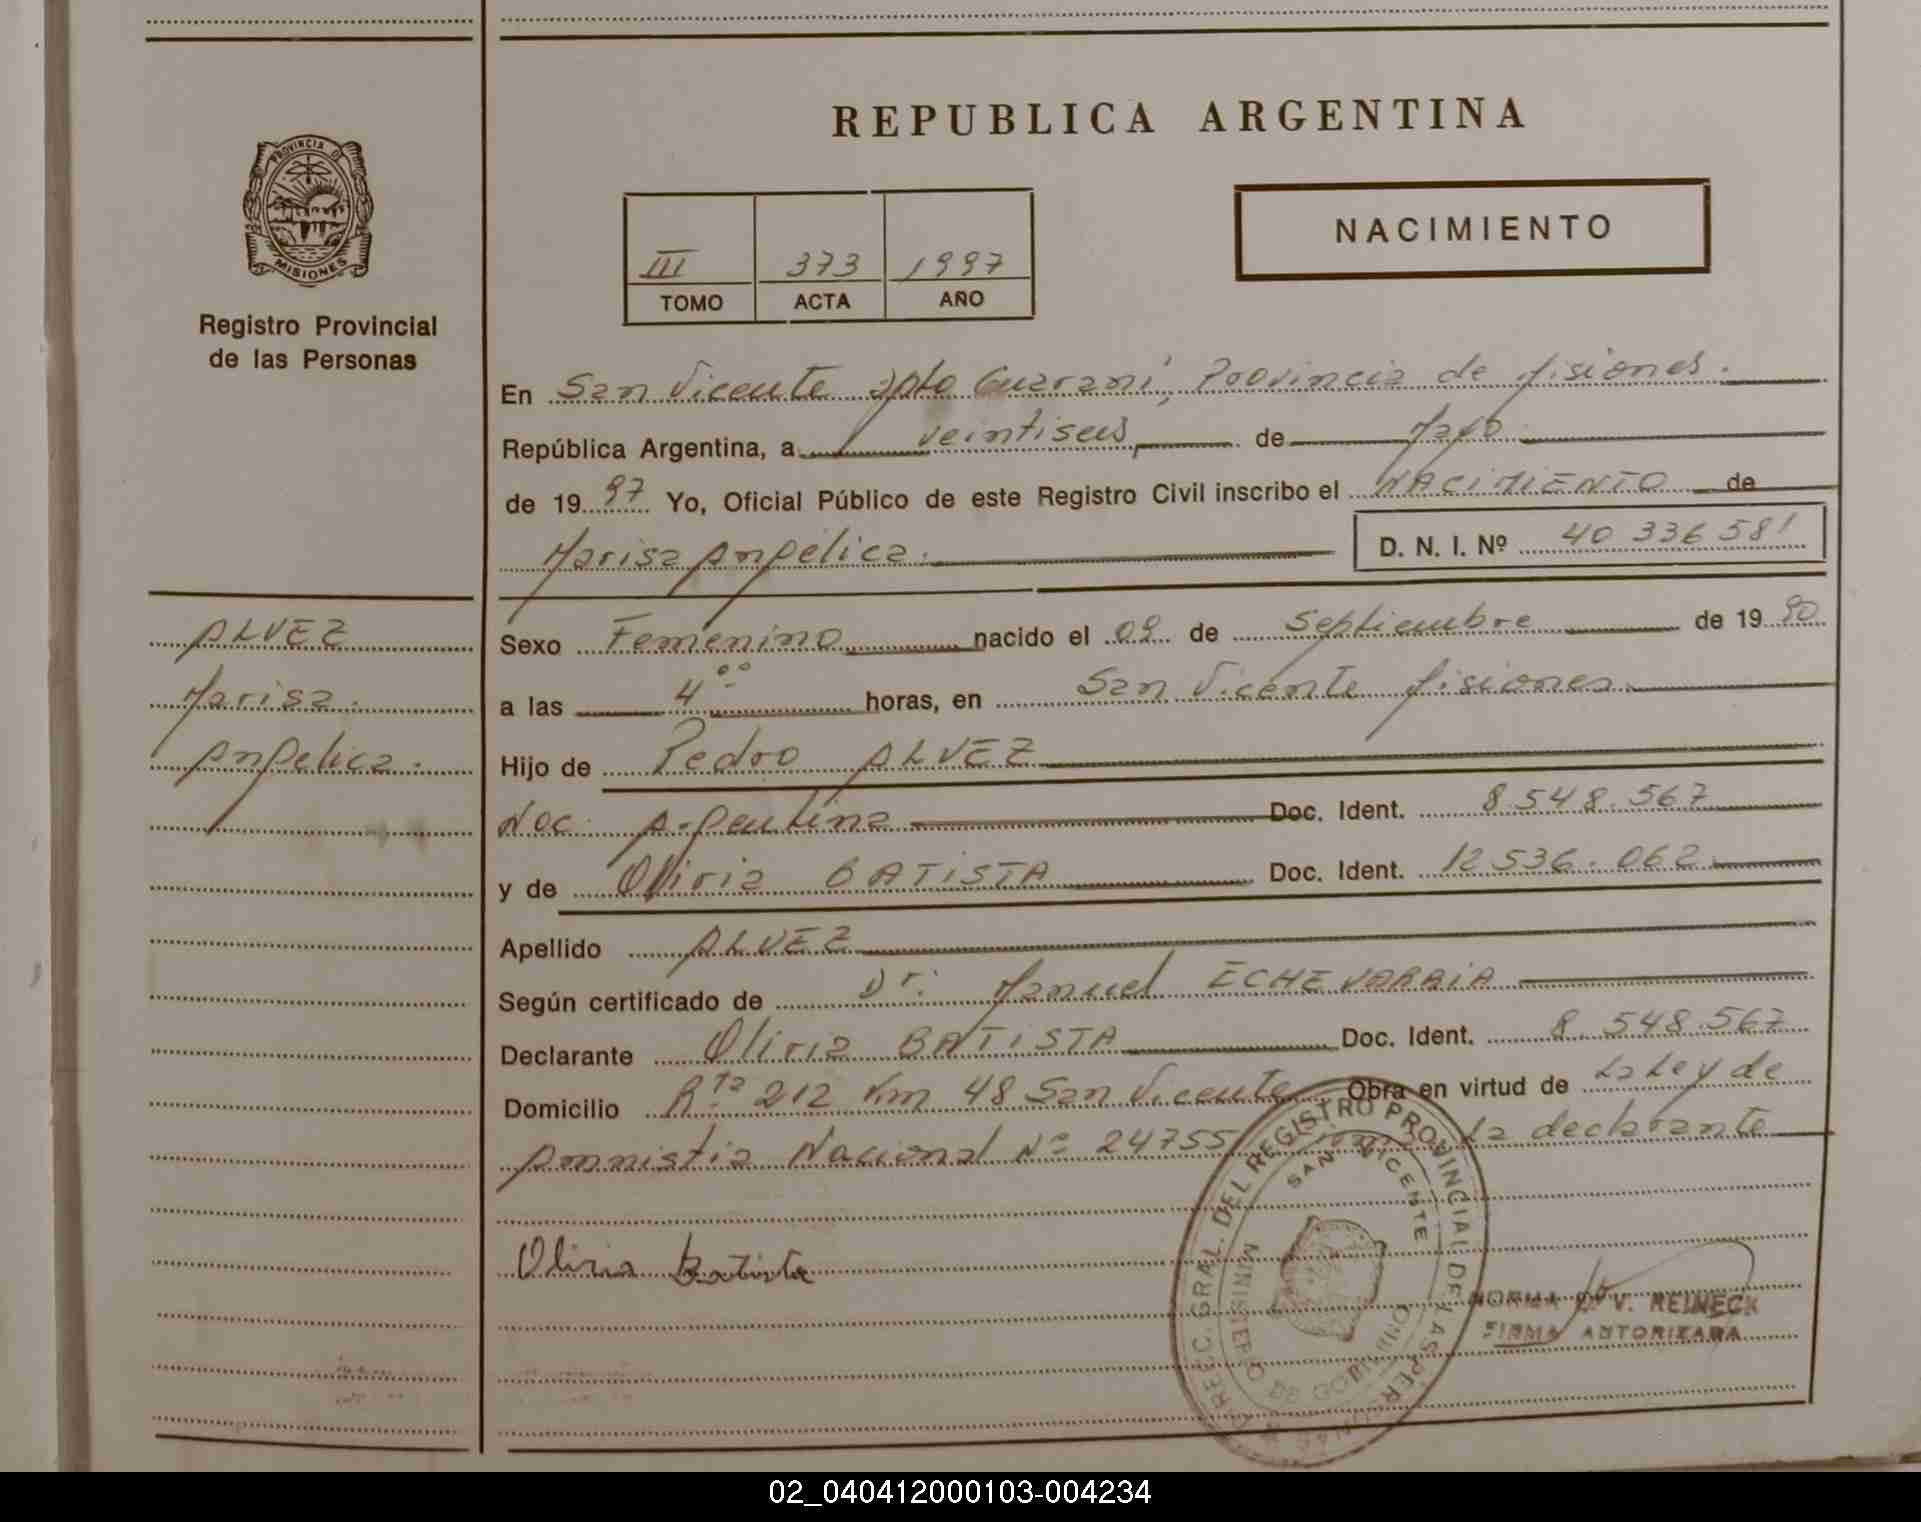 REPUBLICA ARGENTINA
PROVINCIA DE
MISIONES
Registro Provincial
de las Personas
III 373 1997
TOMO ACTA AÑO
NACIMIENTO
En San Vicente Dpto Guaraní, Provincia de Misiones.
República Argentina, a veintiseis de Mayo
de 1997 Yo, Oficial Público de este Registro Civil inscribo el NACIMIENTO de
Marisa Angélica. D. N. I. Nº 40 336 581
ALVEZ
Marisa.
Angelica.
Sexo Femenino nacido el 09 de Septiembre de 1990
a las 4°° horas, en San Vicente Misiones.
Hijo de Pedro ALVEZ
Nac. Argentina Doc. Ident. 8.548.567
y de Oliria BATISTA Doc. Ident. 12536.062
Apellido ALVEZ
Según certificado de Dr. Manuel ECHEVARRIA
Declarante Oliria BATISTA Doc. Ident. 8.548.567
Domicilio Rta 212 Km 48 San Vicente Obra en virtud de La Ley de
Amnistia Nacional Nº 24755 La declarante
Oliria Batista
DIRECC. GRAL. DEL REGISTRO PROVINCIAL DE LAS PERSONAS
SAN VICENTE
MINISTERIO DE GOBIERNO
NORMA V. REINECK
FIRMA AUTORIZADA
02_040412000103-004234